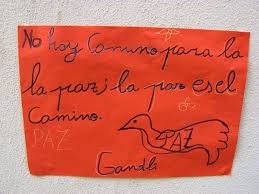 No hay Camino para la
la paz; la paz es el
Camino.
PAZ
PAZ
Gandhi